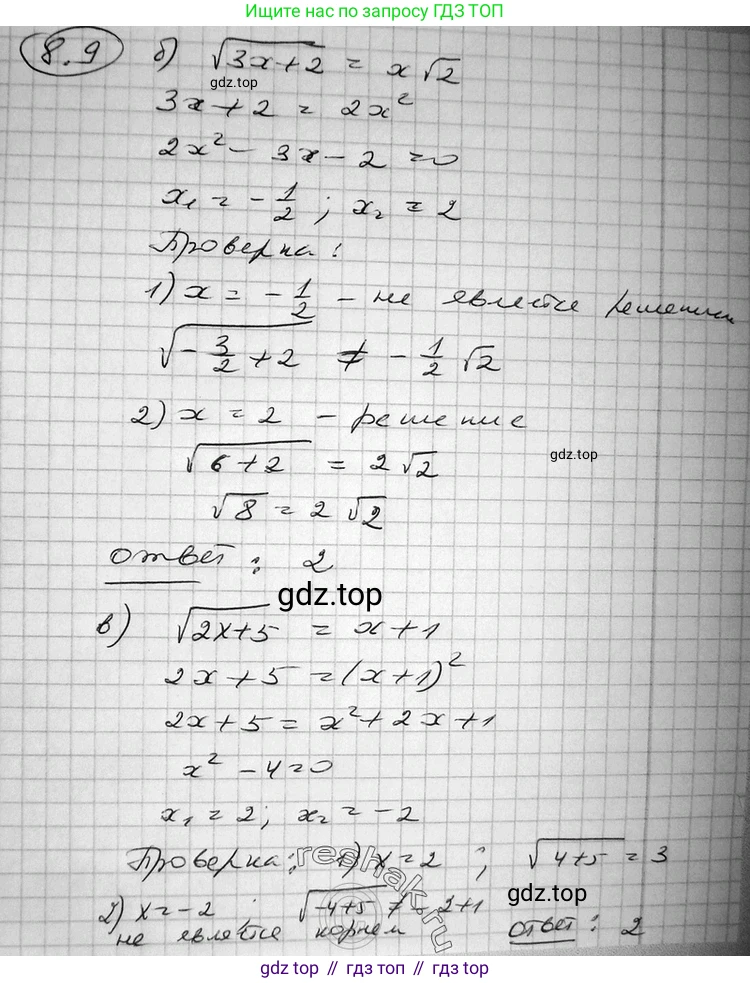 Ещё больше решений по запросу ГДЗ ТОП
8.9 б) √(3x+2) = x√2
gdz.top
3x+2 = 2x²
2x² - 3x - 2 = 0
x₁ = -1/2 ; x₂ = 2
Проверка:
1) x = -1/2 - не является решением
√(-3/2+2) ≠ -1/2 √2
2) x = 2 - решение
√(6+2) = 2√2
gdz.top
√8 = 2√2
ответ: 2
gdz.top
в) √(2x+5) = x+1
2x+5 = (x+1)²
2x+5 = x²+2x+1
x² - 4 = 0
x₁ = 2; x₂ = -2
Проверка: 1) x = 2 ; √(4+5) = 3
reshak.ru
gdz.top
2) x = -2 ; √(-4+5) ≠ -2+1
не является корнем ответ: 2
gdz.top // гдз.топ // gdz.top // гдз.топ